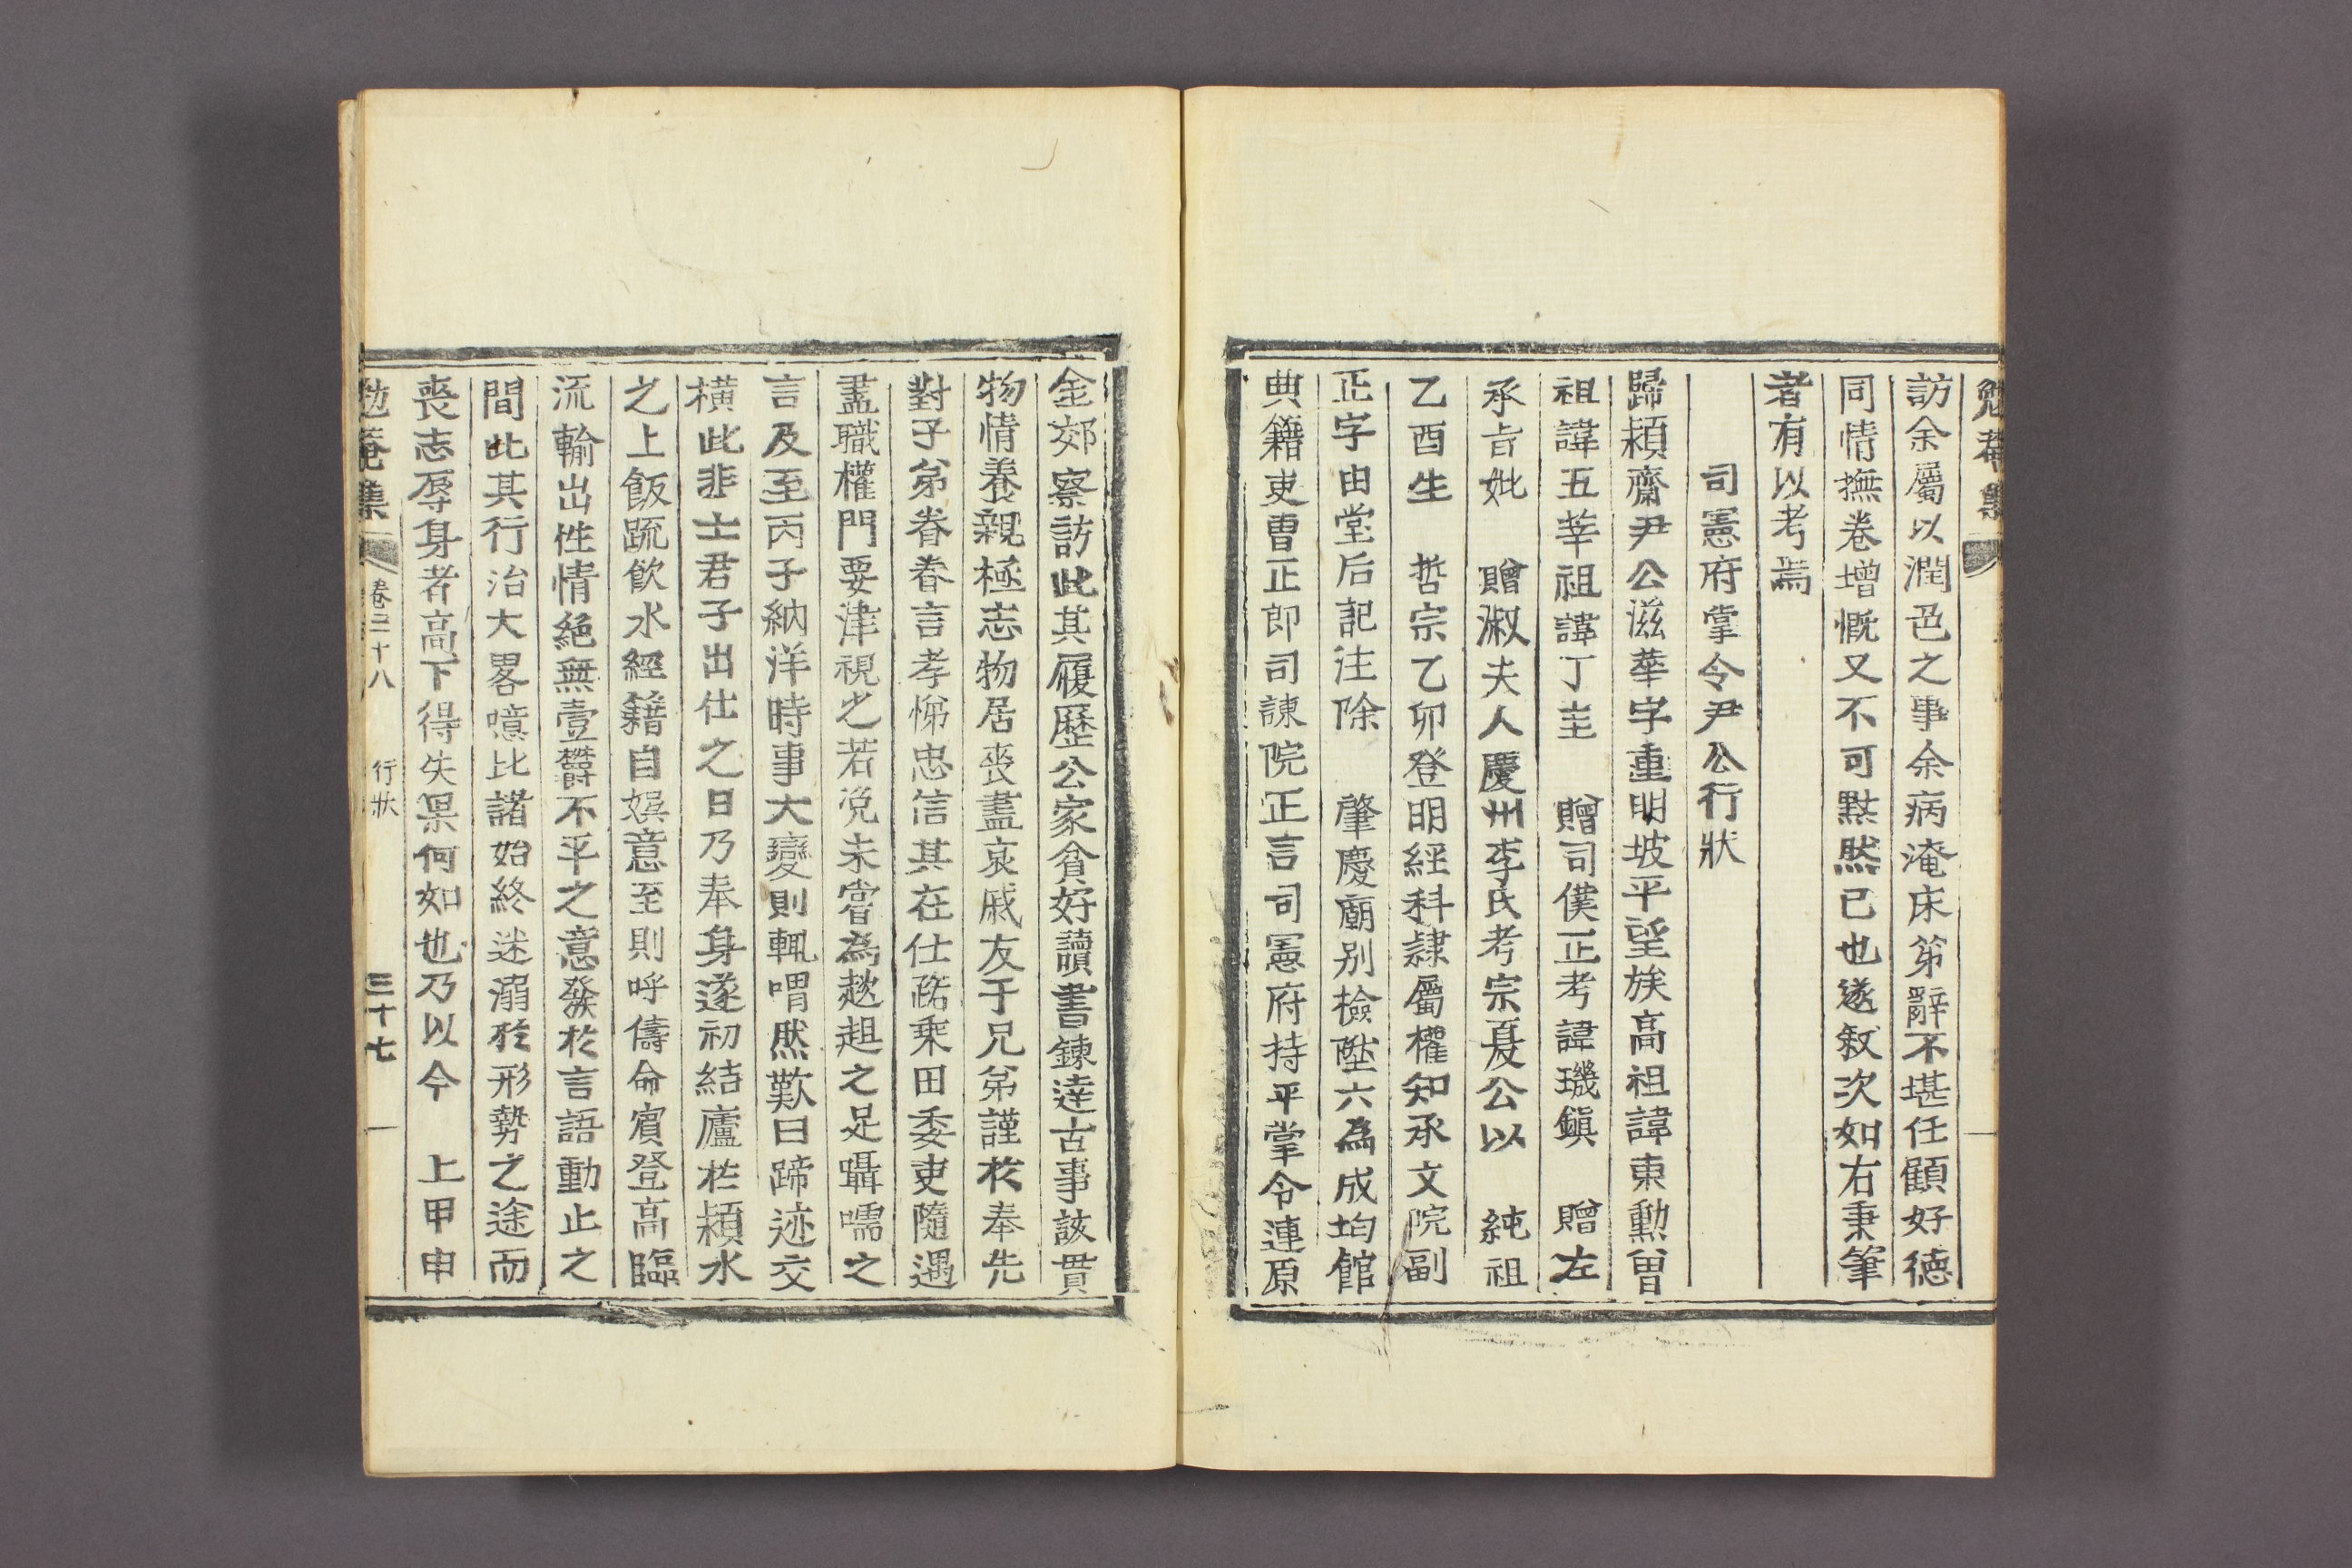 勉菴集
訪余屬以潤色之事余病淹床笫辭不堪任顧好德
同情撫卷增慨又不可默然已也遂敘次如右秉筆
者有以考焉
司憲府掌令尹公行狀
歸潁齋尹公滋華字重明坡平望族高祖諱東勳曾
祖諱五莘祖諱丁圭 贈司僕正考諱璣鎭 贈左
承旨妣 贈淑夫人慶州李氏考宗夏公以 純祖
乙酉生 哲宗乙卯登明經科隷屬權知承文院副
正字由堂后記注除 肇慶廟別檢陞六爲成均館
典籍吏曹正郎司諫院正言司憲府持平掌令連原
金郊察訪此其履歷公家貧好讀書鍊達古事該貫
物情養親極志物居喪盡哀戚友于兄弟謹於奉先
對子弟眷眷言孝悌忠信其在仕路乘田委吏隨遇
盡職權門要津視之若浼未嘗爲趑趄之足囁嚅之
言及至丙子納洋時事大變則輒喟然歎曰蹄迹交
橫此非士君子出仕之日乃奉身遂初結廬於潁水
之上飯疏飮水經籍自娛意至則呼儔命賓登高臨
流輸出性情絶無壹欝不平之意發於言語動止之
間此其行治大畧噫比諸始終迷溺於形勢之途而
喪志辱身者高下得失果何如也乃以今 上甲申
勉菴集 卷三十八 行狀 三十七